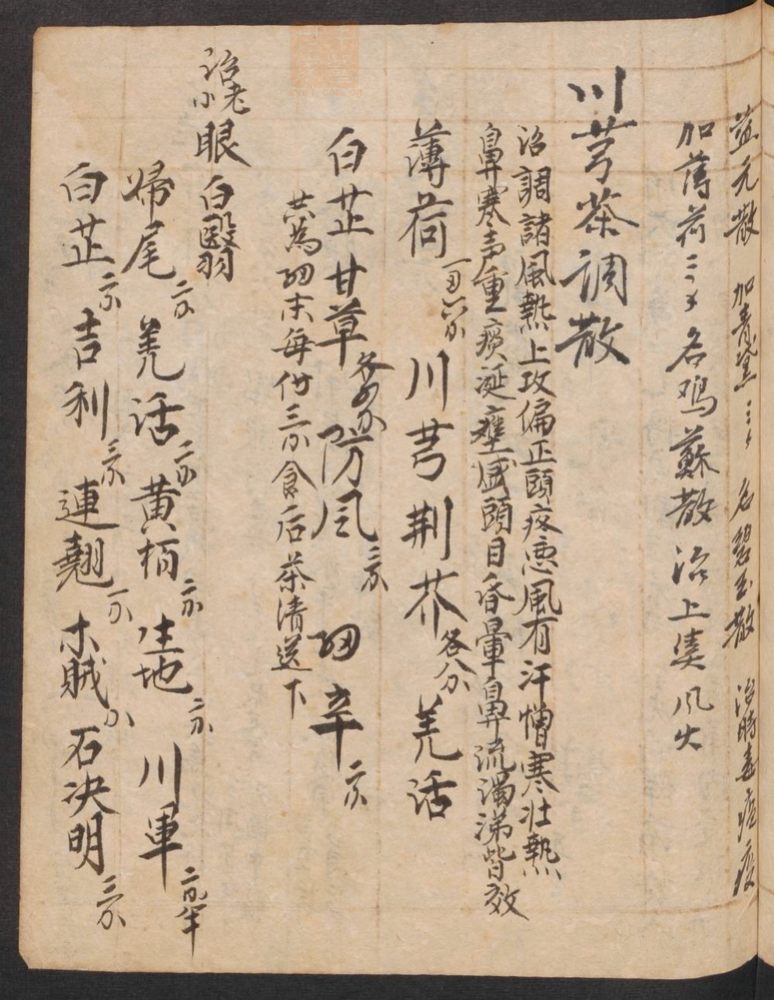 益元散 加青黛三〻 名碧玉散 治時毒瘟疫
加薄荷三〻 名鸡蘇散 治上焦风火
川芎茶調散
治調諸風熱上攻偏正頭疼悪風有汗憎寒壮熱
鼻寒声重痰涎壅盛頭目昏暈鼻流濁涕皆效
薄荷 川芎荆芥 各 羌活
白芷甘草 各 防风 三分 细辛 二分
共為细末每付三分食后茶清送下
治老小眼白翳
帰尾 二分 羌活 二分 黄栢 二分 生地 二分 川軍 二分半
白芷 二分 吉利 三分 連翹 一分 木賊 石决明 三分